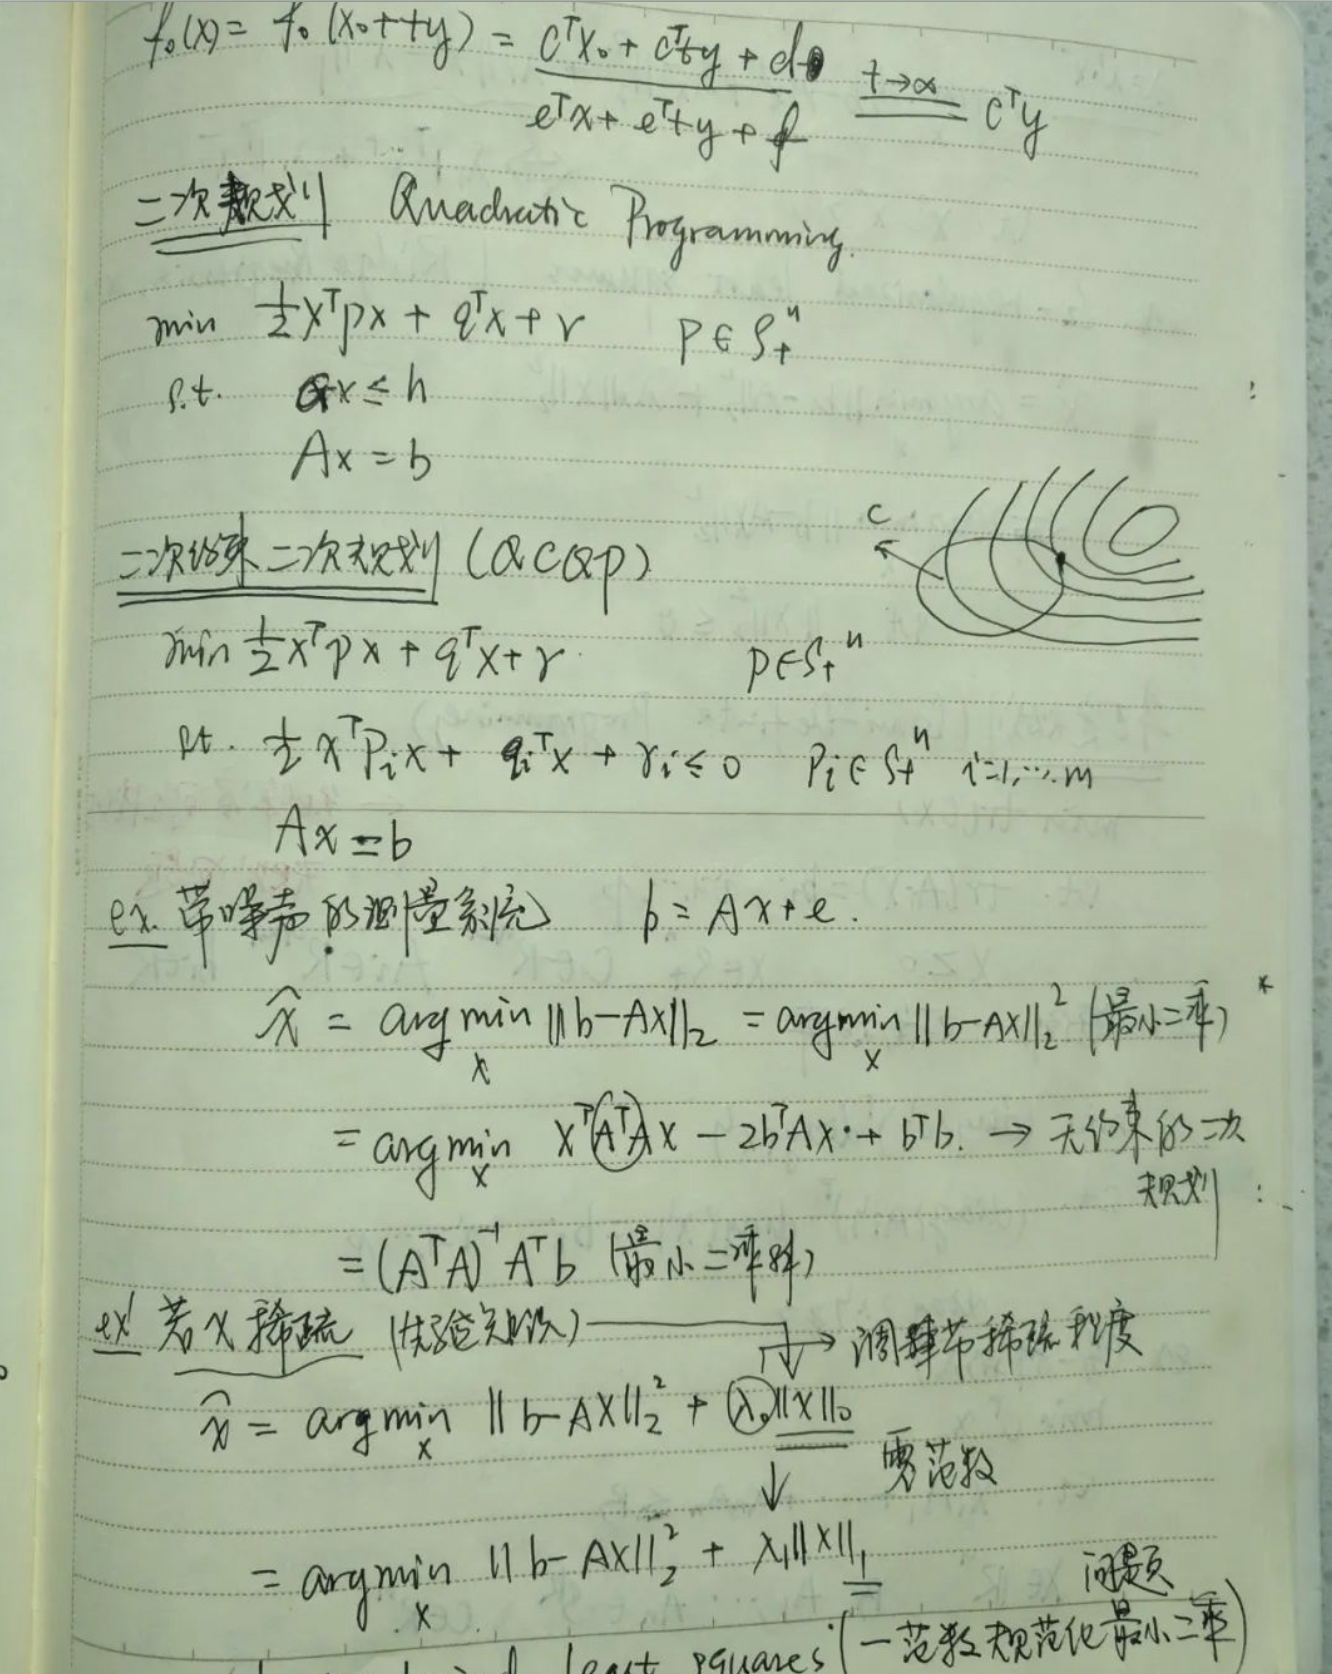 f₀(x) = f₀(x₀+ty) = (cᵀx₀ + cᵀty + d) / (eᵀx + eᵀty + f) t→∞ cᵀy
二次规划 Quadratic Programming.
min ½xᵀPx + qᵀx + r P∈S₊ⁿ
s.t. Gx ≤ h
Ax = b
C
二次约束二次规划 (QCQP)
min ½xᵀPx + qᵀx + r P∈S₊ⁿ
s.t. ½xᵀPᵢx + qᵢᵀx + rᵢ ≤ 0 Pᵢ∈S₊ⁿ i=1,…m
Ax = b
ex. 带噪声的测量系统 b = Ax + e.
x̂ = argminₓ ||b-Ax||₂ = argminₓ ||b-Ax||₂² (最小二乘)
= argminₓ xᵀAᵀAx - 2bᵀAx + bᵀb. → 无约束的二次
规划
= (AᵀA)⁻¹Aᵀb (最小二乘解)
ex' 若x稀疏 (先验知识) → 调节稀疏程度
x̂ = argminₓ ||b-Ax||₂² + λ₀||x||₀
↓ 零范数
= argminₓ ||b-Ax||₂² + λ₁||x||₁
问题
least squares (一范数规范化最小二乘)